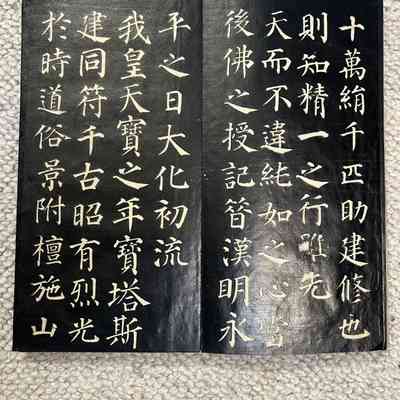 十萬絹千匹助建修也
則知精一之行雖先
天而不違純如之心當
後佛之授記昔漢明永
平之日大化初流
我皇天寶之年寶塔斯
建同符千古昭有烈光
於時道俗景附檀施山